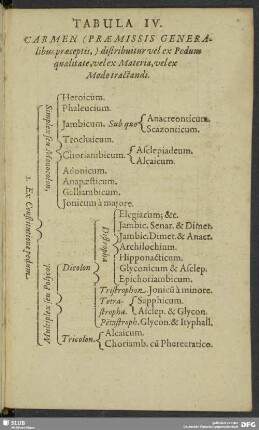 TABULA IV.
CARMEN (PRÆMISSIS GENERA-
libus præceptis,) distribuitur vel ex Pedum
qualitate, vel ex Materia, vel ex
Modo tractandi.
1. Ex Constitutione pedum.
Simplex seu Monocolon,
Heroicum.
Phaleucium.
Jambicum. Sub quo
Anacreonticum.
Scazonticum.
Trochaicum.
Choriambicum.
Asclepiadeum.
Alcaicum.
Adonicum.
Anapæsticum.
Galliambicum.
Jonicum à majore.
Multiplex seu
Dicolon
Distropha
Elegiacum; &c.
Jambic. Senar. & Dimet.
Jambic. Dimet. & Anact.
Archilochium.
Hipponacticum.
Glyconicum & Asclep.
Epichoriambicum.
Tristrophon. Jonicū à minore.
Tetra-
stropha.
Sapphicum.
Asclep. & Glycon.
Pētastroph. Glycon. & Ityphall.
Tricolon.
Alcaicum.
Choriamb. cū Pherecratico.
SLUB
DFG